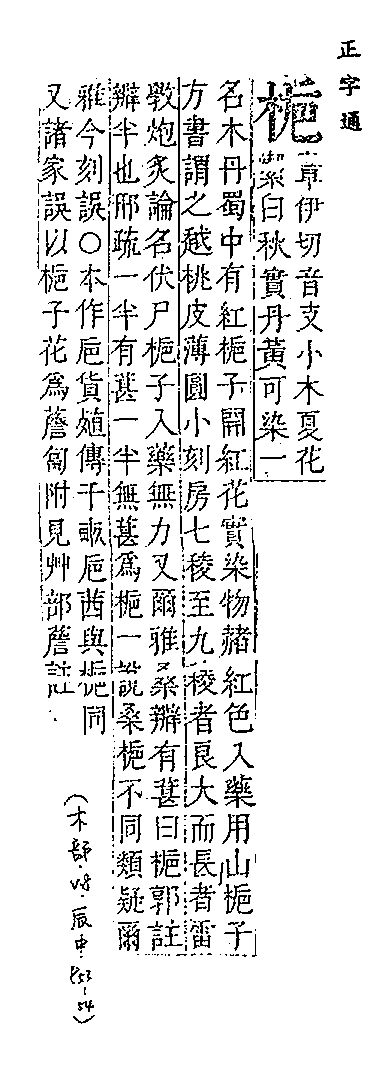 正字通
梔
章伊切音支小木夏花
潔白秋實丹黃可染一
名木丹蜀中有紅梔子開紅花實染物赭紅色入藥用山梔子
方書謂之越桃皮薄圓小刻房七稜至九稜者良大而長者雷
斆炮炙論名伏尸梔子入藥無力又爾雅桑辧有葚曰梔郭註
辧半也邢疏一半有葚一半無葚爲梔一說桑梔不同類疑爾
雅今刻誤〇本作巵貨殖傳千畝巵茜與梔同
又諸家誤以梔子花爲薝匐附見艸部薝註
(木部·辰中·53-54)